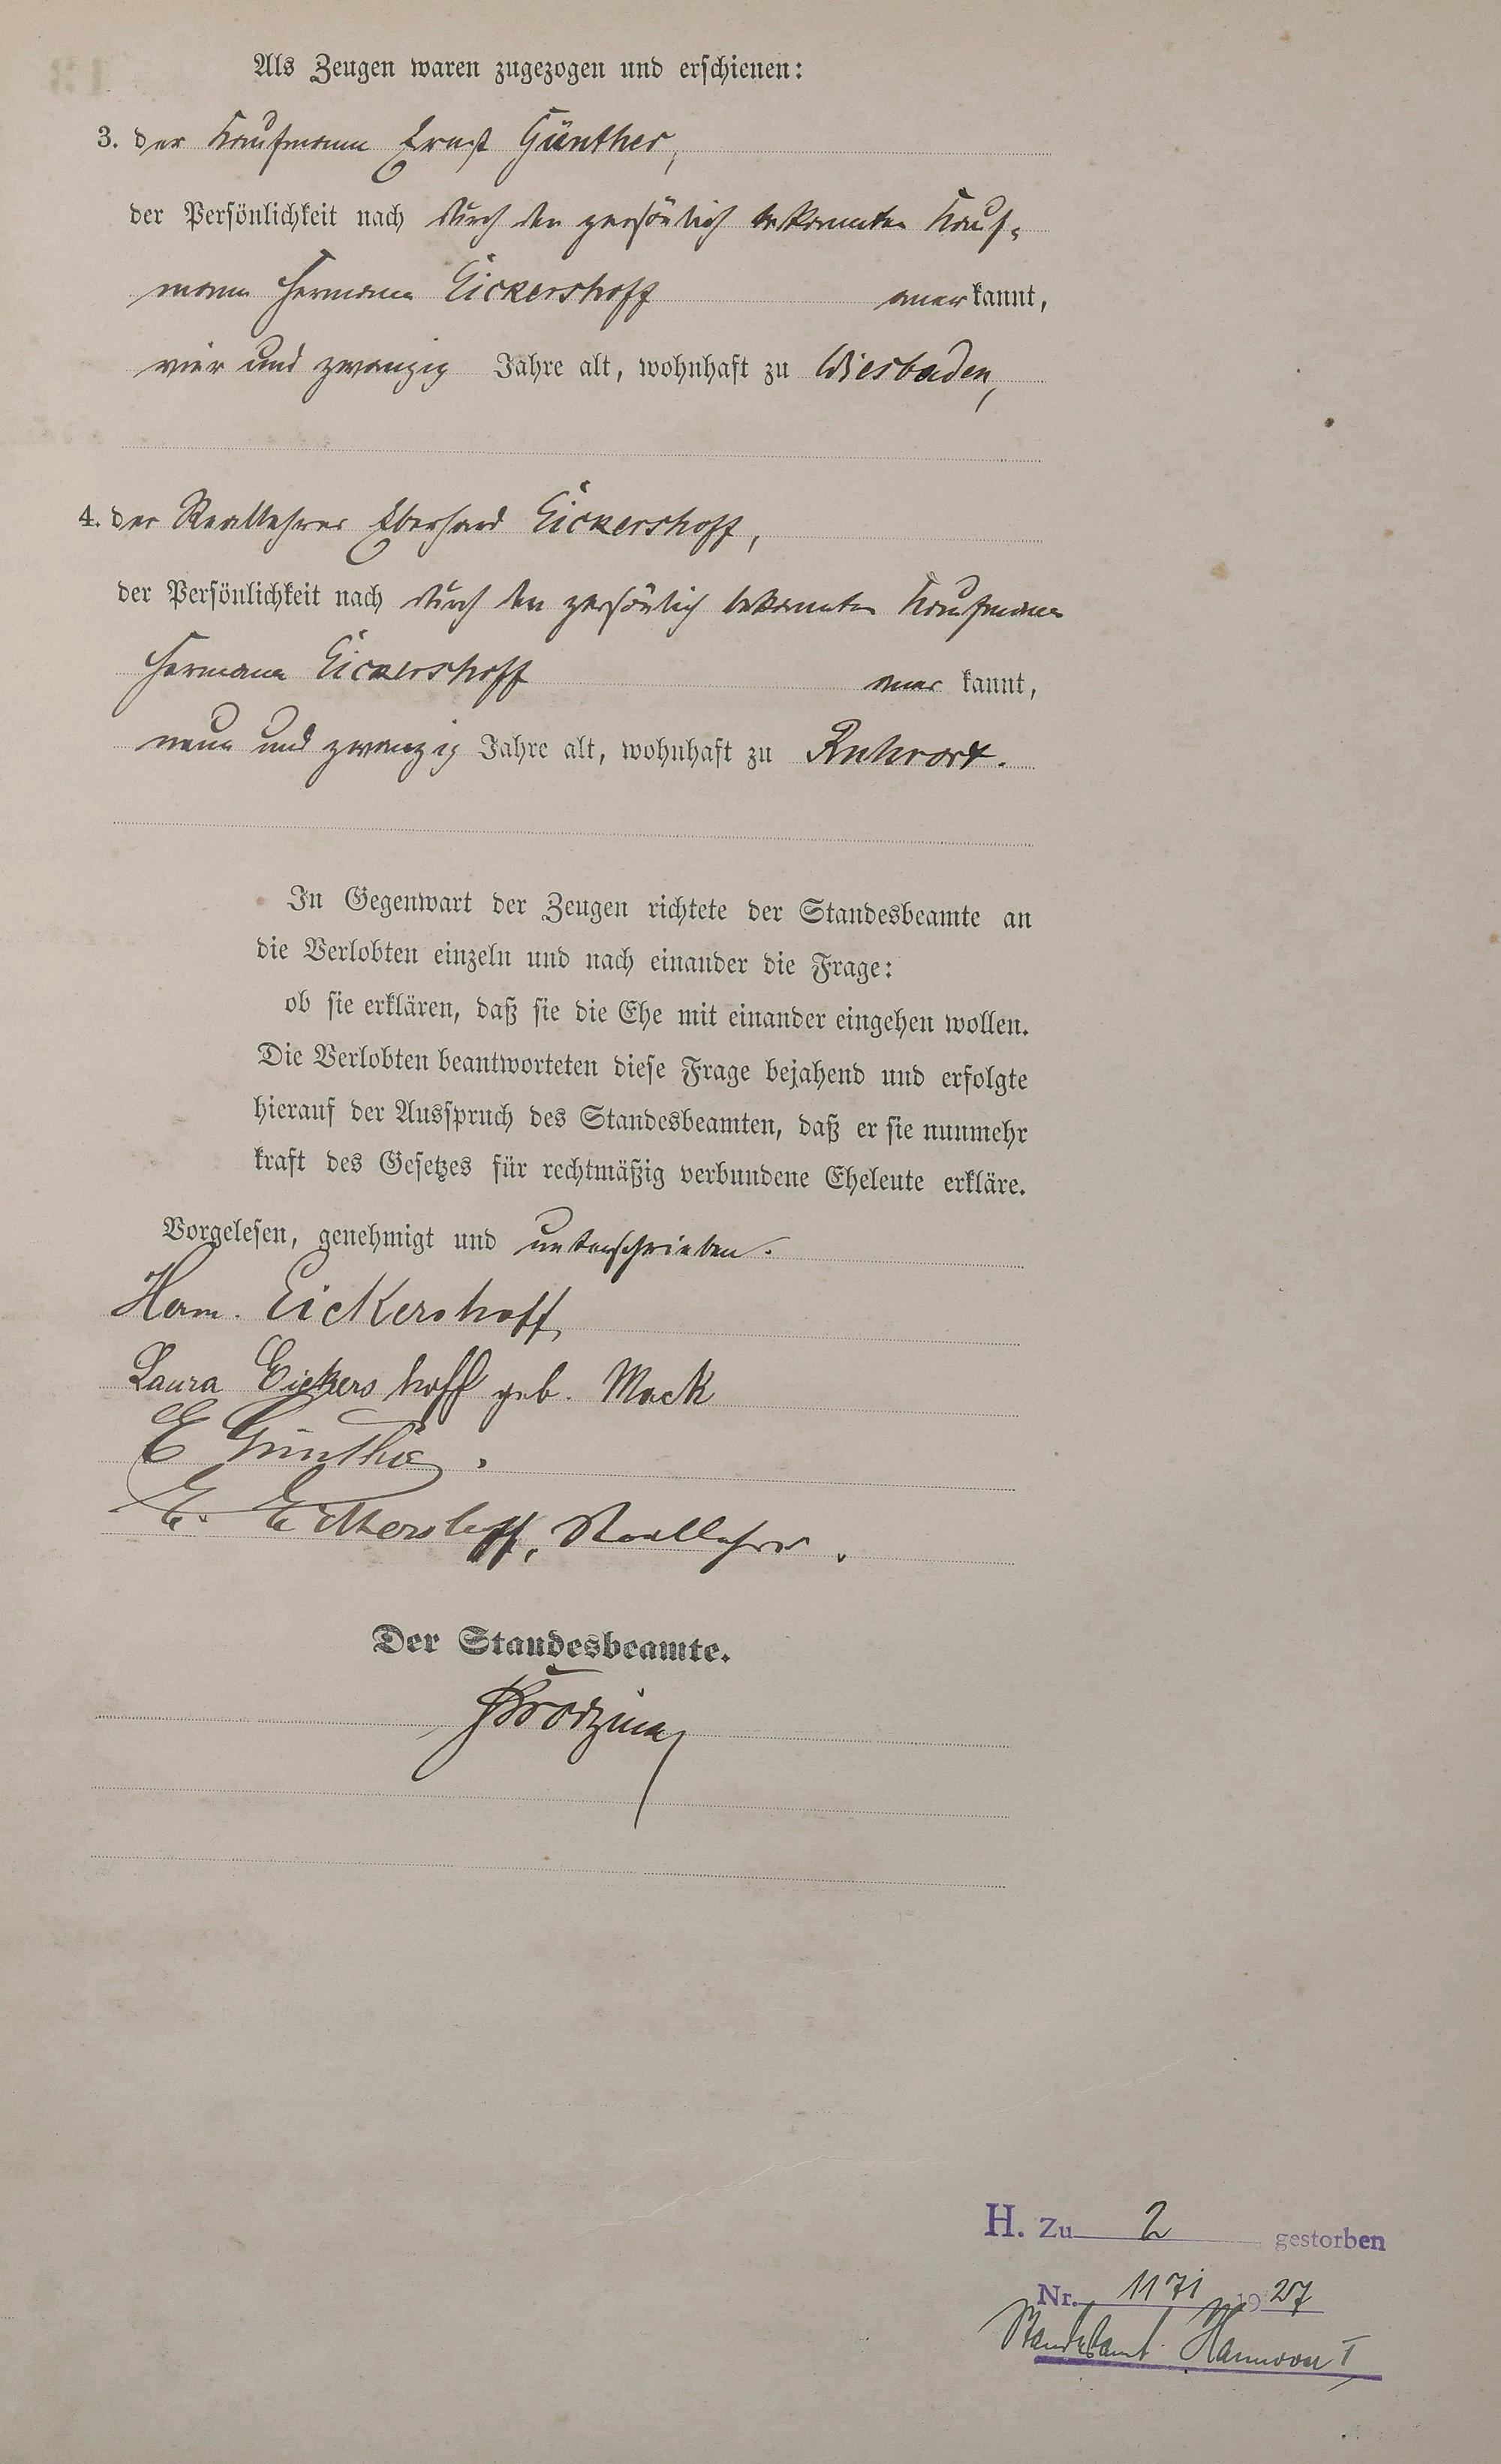 Als Zeugen waren zugezogen und erschienen:
3. der Kaufmann Ernst Günther,
der Persönlichkeit nach durch den persönlich bekannten Kauf-
mann Hermann Eickershoff anerkannt,
vier und zwanzig Jahre alt, wohnhaft zu Wiesbaden,
4. der Reallehrer Eberhard Eickershoff,
der Persönlichkeit nach durch den persönlich bekannten Kaufmann
Hermann Eickershoff aner kannt,
neun und zwanzig Jahre alt, wohnhaft zu Ruhrort.
In Gegenwart der Zeugen richtete der Standesbeamte an
die Verlobten einzeln und nach einander die Frage:
ob sie erklären, daß sie die Ehe mit einander eingehen wollen.
Die Verlobten beantworteten diese Frage bejahend und erfolgte
hierauf der Ausspruch des Standesbeamten, daß er sie nunmehr
kraft des Gesetzes für rechtmäßig verbundene Eheleute erkläre.
Vorgelesen, genehmigt und unterschrieben.
Herm. Eickershoff,
Laura Eickershoff geb. Mack
E Günther.
E. Eickershoff, Reallehrer.
Der Standesbeamte.
H. Zu 2 gestorben
Nr. 1171 1927
Standesamt Hannover I